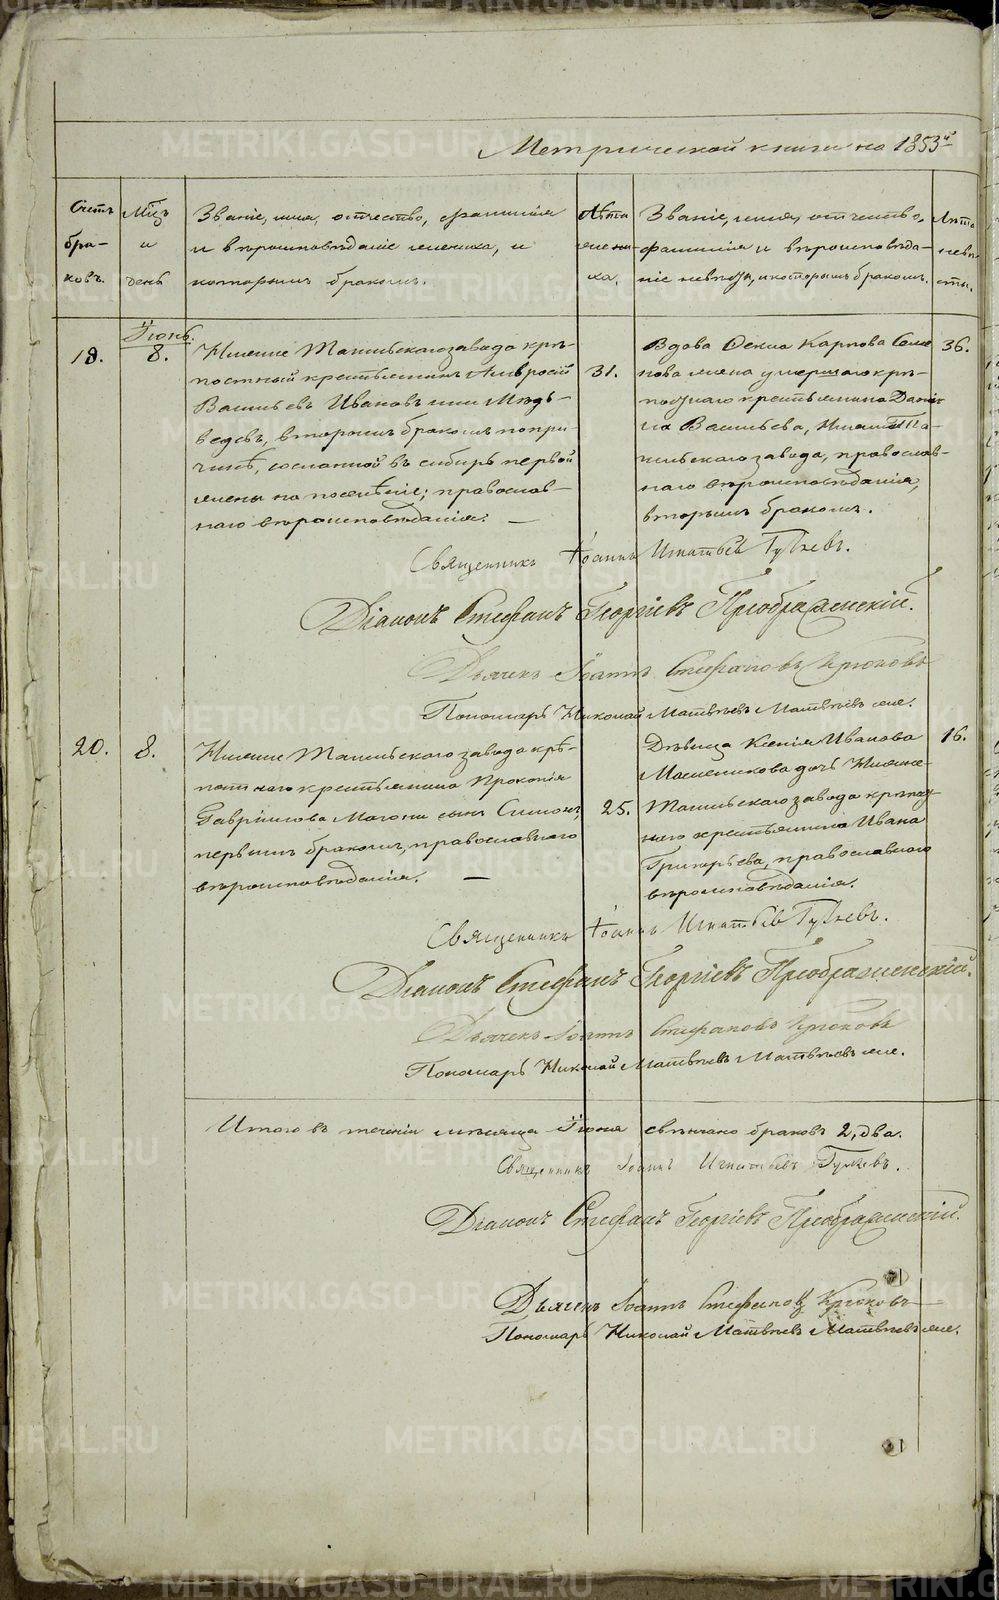 METRIKI.GASO-URAL.RU
Метрической книги на 1853й
Счетъ браковъ.
Мцъ и день
Званіе, имя, отчество, фамилія и вѣроисповѣданіе жениха, и которымъ бракомъ.
Лѣта жениха.
Званіе, имя, отчество, фамилія и вѣроисповѣданіе невѣсты, и которымъ бракомъ.
Лѣта невѣсты.
Іюнь.
19.
8.
Нижне Тагильскаго завода крѣ-
постный крестьянинъ Амвросій
Васильевъ Ивановъ или Мѣдь-
ведевъ, вторымъ бракомъ по при-
чинѣ, сосланной въ сибирь первой
жены на поселѣніе; православ-
наго вѣроисповѣданія. —
31.
Вдова Ксенія Карпова
нова жена умершаго крѣ-
постнаго крестьянина Дани-
ла Васильева, Нижне Та-
гильскаго завода, православ-
наго вѣроисповѣданія,
вторымъ бракомъ.
36.
Священникъ Іоаннъ Игнатьевъ
Діаконъ Стефанъ Георгіевъ Преображенскій.
Дьячекъ Іоаннъ Стефановъ Крюковъ
Пономарь Николай Матвѣевъ Матвѣевъ же.
20.
8.
Нижне Тагильскаго завода крѣ-
постнаго крестьянина Прокопія
Гавріилова сынъ Симонъ,
первымъ бракомъ, православнаго
вѣроисповѣданія. —
25.
Дѣвица Ксенія Иванова
Масленикова дочь Нижне-
Тагильскаго завода крѣпост-
наго крестьянина Ивана
Григорьева, православнаго
вѣроисповѣданія.
16.
Священникъ Іоаннъ Игнатьевъ
Діаконъ Стефанъ Георгіевъ Преображенскій.
Дьячекъ Іоаннъ Стефановъ Крюковъ
Пономарь Николай Матвѣевъ Матвѣевъ же.
Итого въ теченіи мѣсяца Іюня свѣнчано браковъ 2, два.
Священникъ Іоаннъ Игнатьевъ
Діаконъ Стефанъ Георгіевъ Преображенскій.
Дьячекъ Іоаннъ Стефановъ Крюковъ
Пономарь Николай Матвѣевъ Матвѣевъ же.